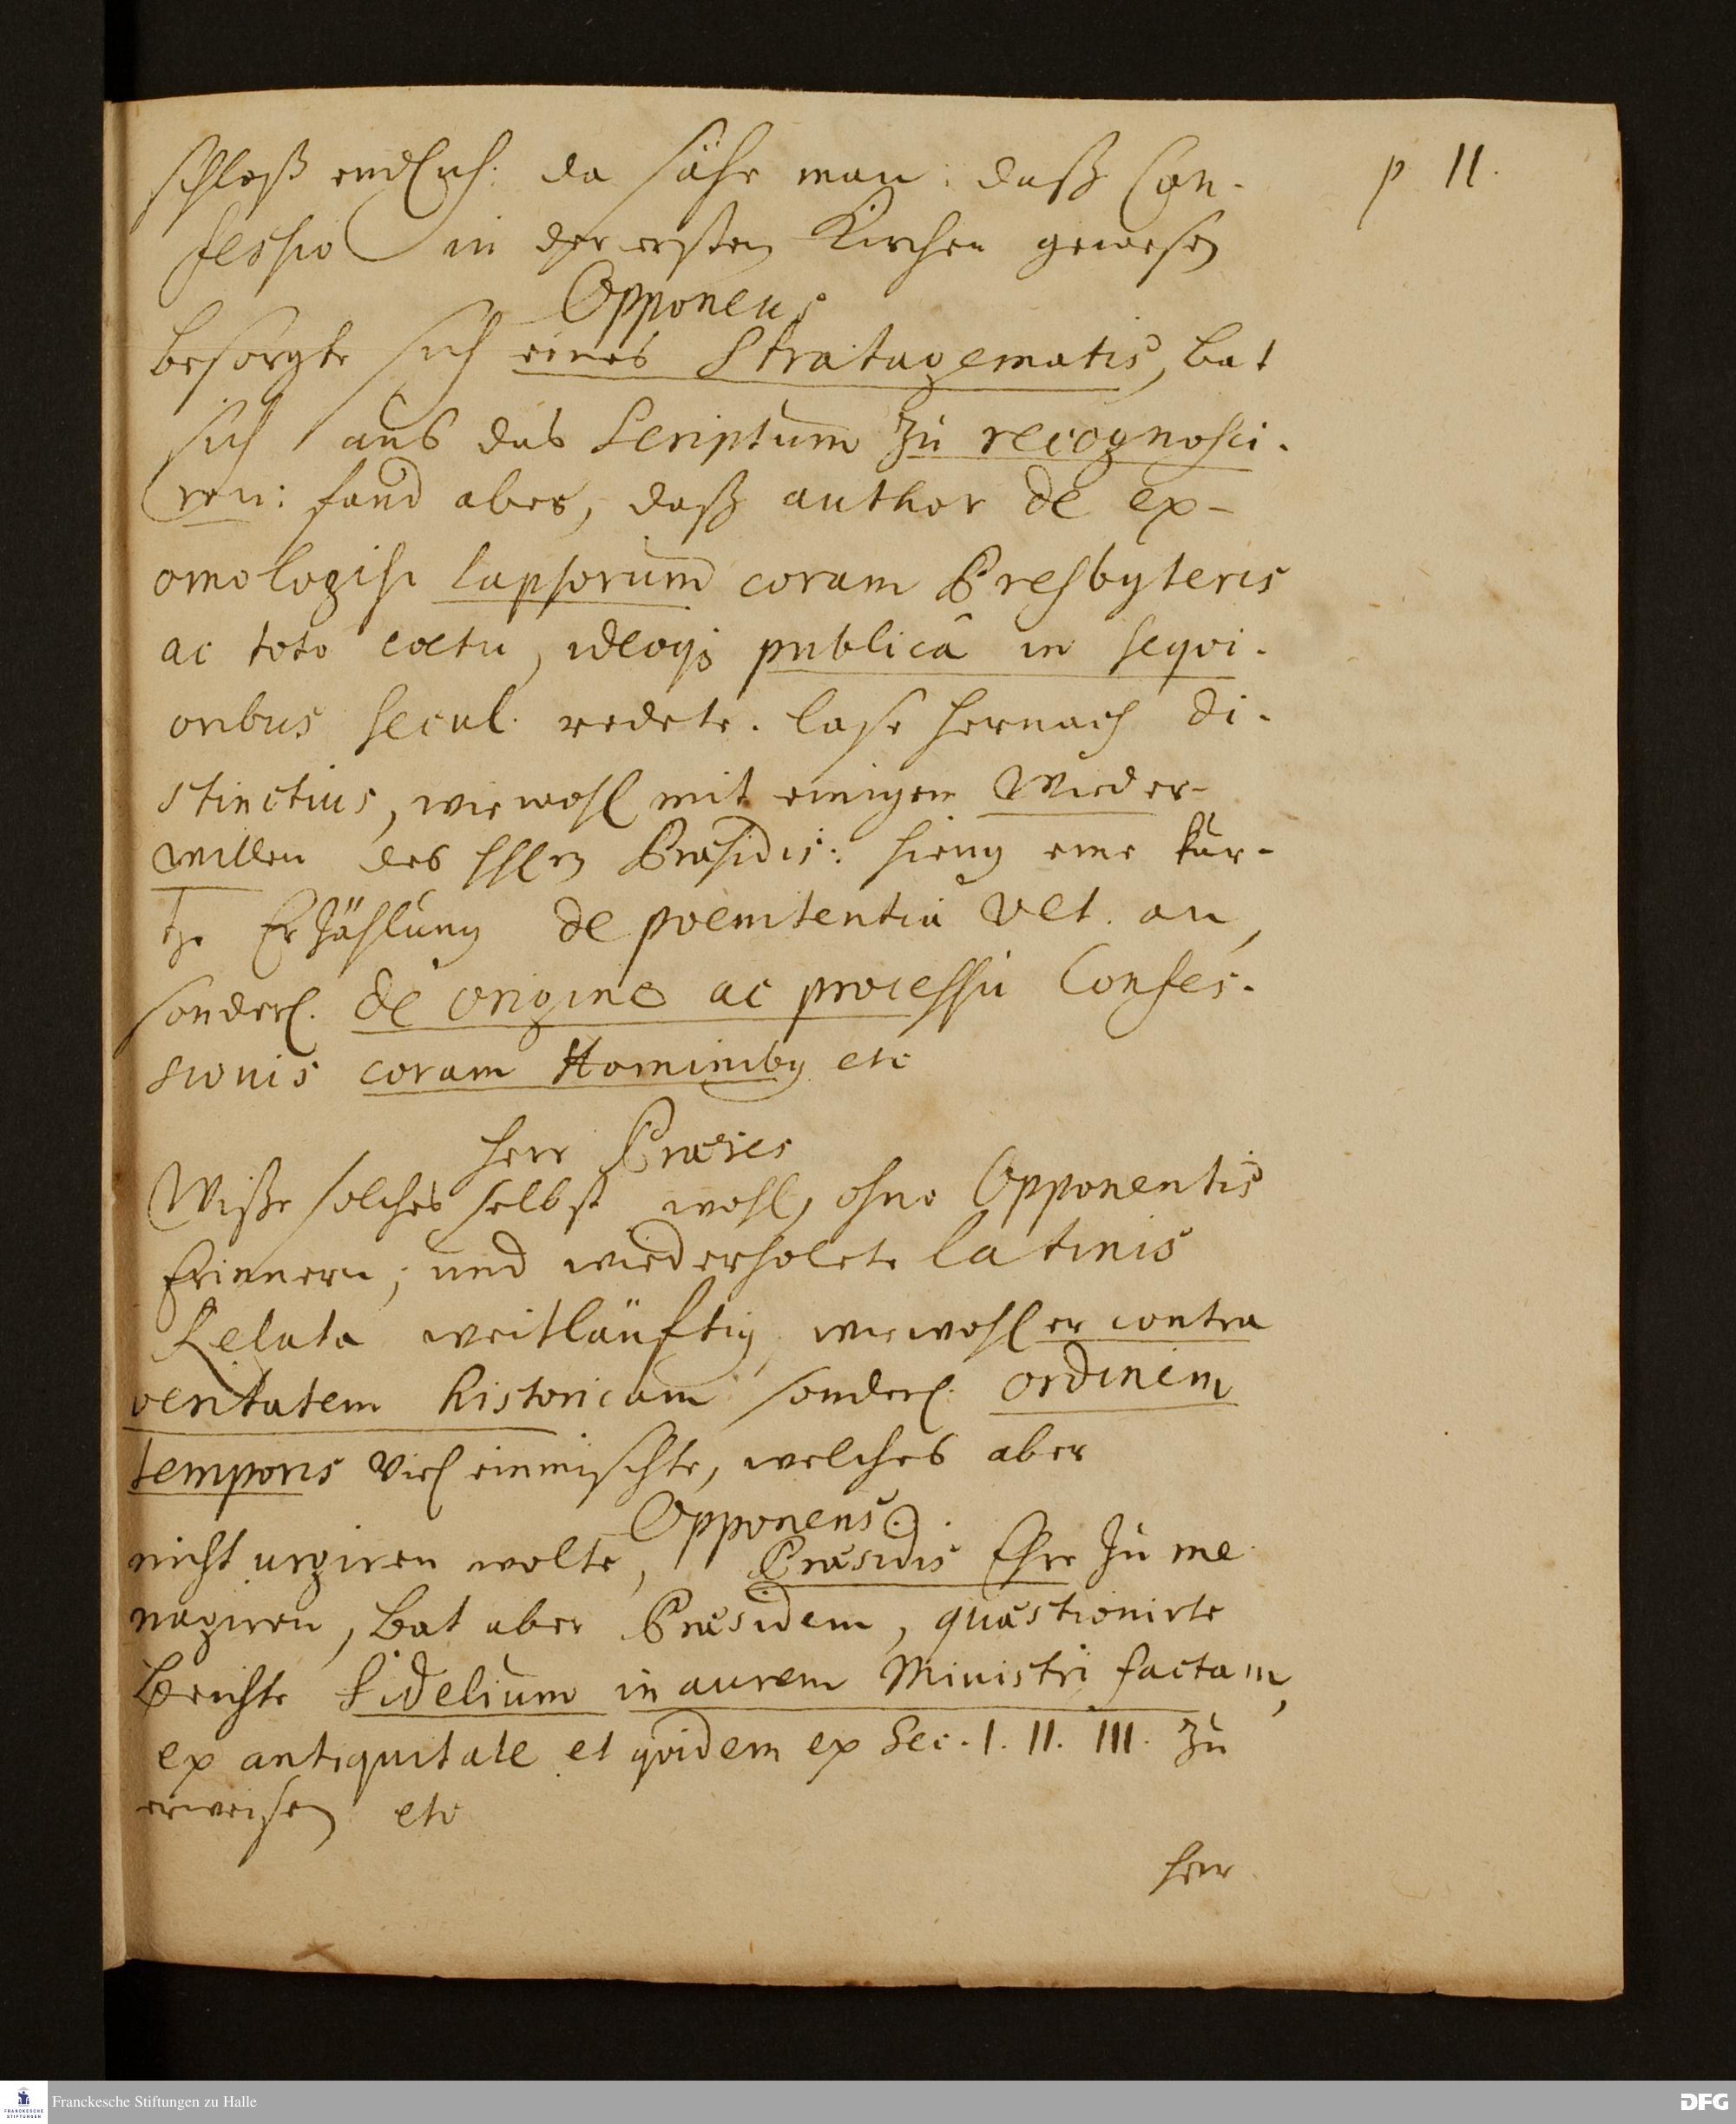 schloß endlich: da sähe man: daß Con-
p. 11.
fessio in der ersten Kirchen gewesen
Opponens
besorgte sich eines Stratagematis, bat
sich aus das Scriptum zu recognosci-
ren: fand aber, daß author de ex-
omologisi lapsorum coram Presbyteris
ac toto coetu, ideoq; publicâ in sequi-
oribus secul. redete. lase hernach di-
stinctius, wiewohl mit einigem Wieder-
willen des Præsidis: fieng eine kur-
tze Erzählung de poenitentia vet. an,
sonderl. de origine ac processu Confes-
sionis coram Hominibg etc
Herr Præses
Wiße solches selbst wohl, ohne Opponentis
Erinnern; und wiederholete latinis
Relata weitläuftig, wiewohl er contra
veritatem historicam sonderl. ordinem
temporis viel einmischte, welches aber
Opponens
nicht urgiren wolte, Præsidis Ehre zu me
nagiren, bat aber Præsidem, quæstionirte
Beichte fidelium in aurem Ministri factam,
ex antiquitate et quidem ex Sec. I. II. III. zu
erweisen etc
Herr
Franckesche Stiftungen zu Halle
DFG